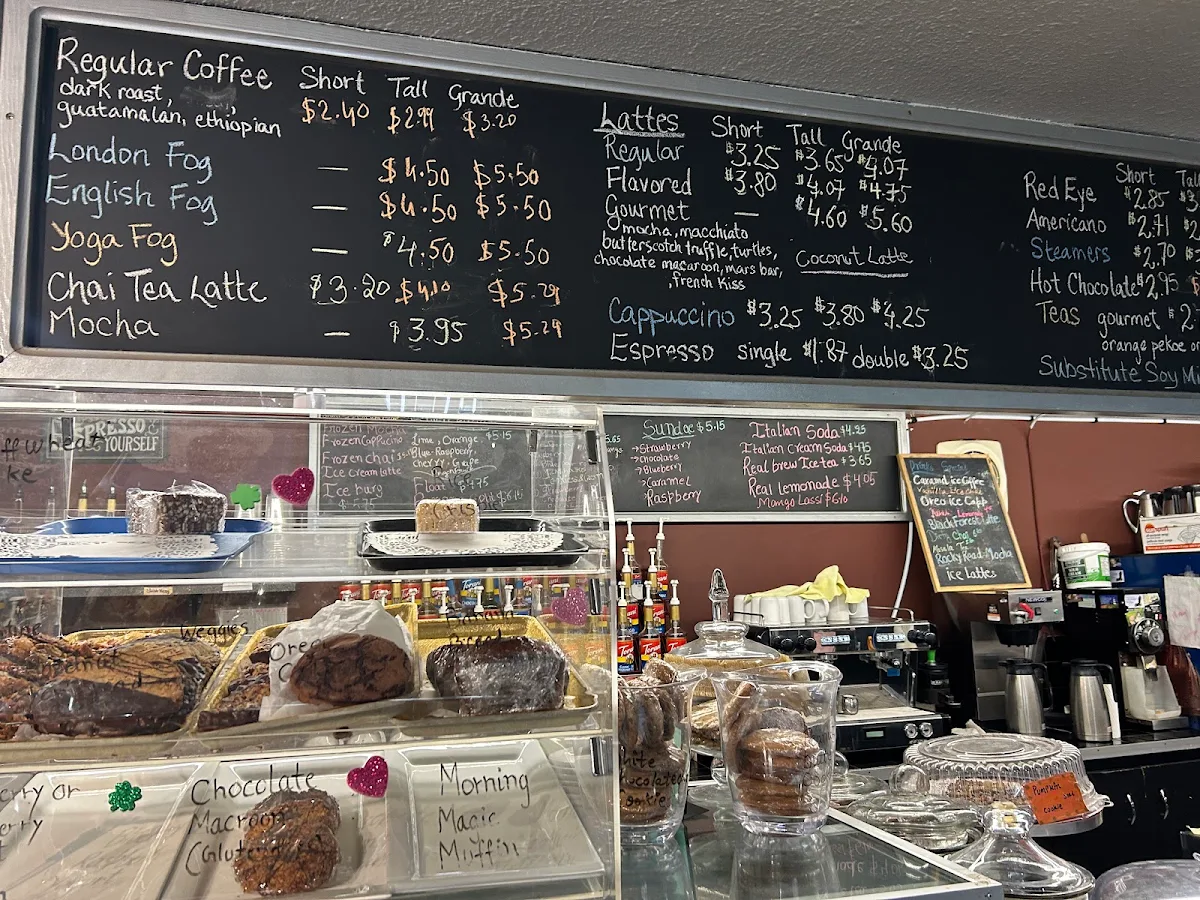 Regular Coffee Short Tall Grande
dark roast, $2.40 $2.99 $3.20
guatamalan, ethiopian
London Fog — $4.50 $5.50
English Fog — $4.50 $5.50
Yoga Fog — $4.50 $5.50
Chai Tea Latte $3.20 $4.10 $5.29
Mocha — $3.95 $5.29
Lattes Short Tall Grande
Regular $3.25 $3.65 $4.07
Flavored $3.80 $4.07 $4.75
Gourmet — $4.60 $5.60
mocha, macchiato
butterscotch truffle, turtles,
chocolate macaroon, mars bar,
, french kiss
Coconut Latte
Cappuccino $3.25 $3.80 $4.25
Espresso single $1.87 double $3.25
Short Tall
Red Eye $2.85
Americano $2.71
Steamers $2.70
Hot Chocolate $2.95
Teas gourmet
orange pekoe or
Substitute Soy Mi
ESPRESSO
YOURSELF
Frozen Mocha
Frozen Cappuccino
Frozen chai
Ice cream latte
Ice burg
Lime, Orange $5.15
Blue-Raspberry,
cherry, Grape
Float $4.75
Sundae $5.15
→Strawberry
→chocolate
→Blueberry
→Caramel
Raspberry
Italian Soda $4.35
Italian Cream Soda $4.75
Real brew Ice tea $3.65
Real lemonade $4.05
Mango Lassi
Caramel ice Coffee
Oreo ice Cap
Black Forest Latte
Rocky Road Mocha
ice Lattes
Weggies
Oreo
Torani
Chocolate
Macroon
Morning
Magic
Muffin
Cookie
Pumpkin
cookie